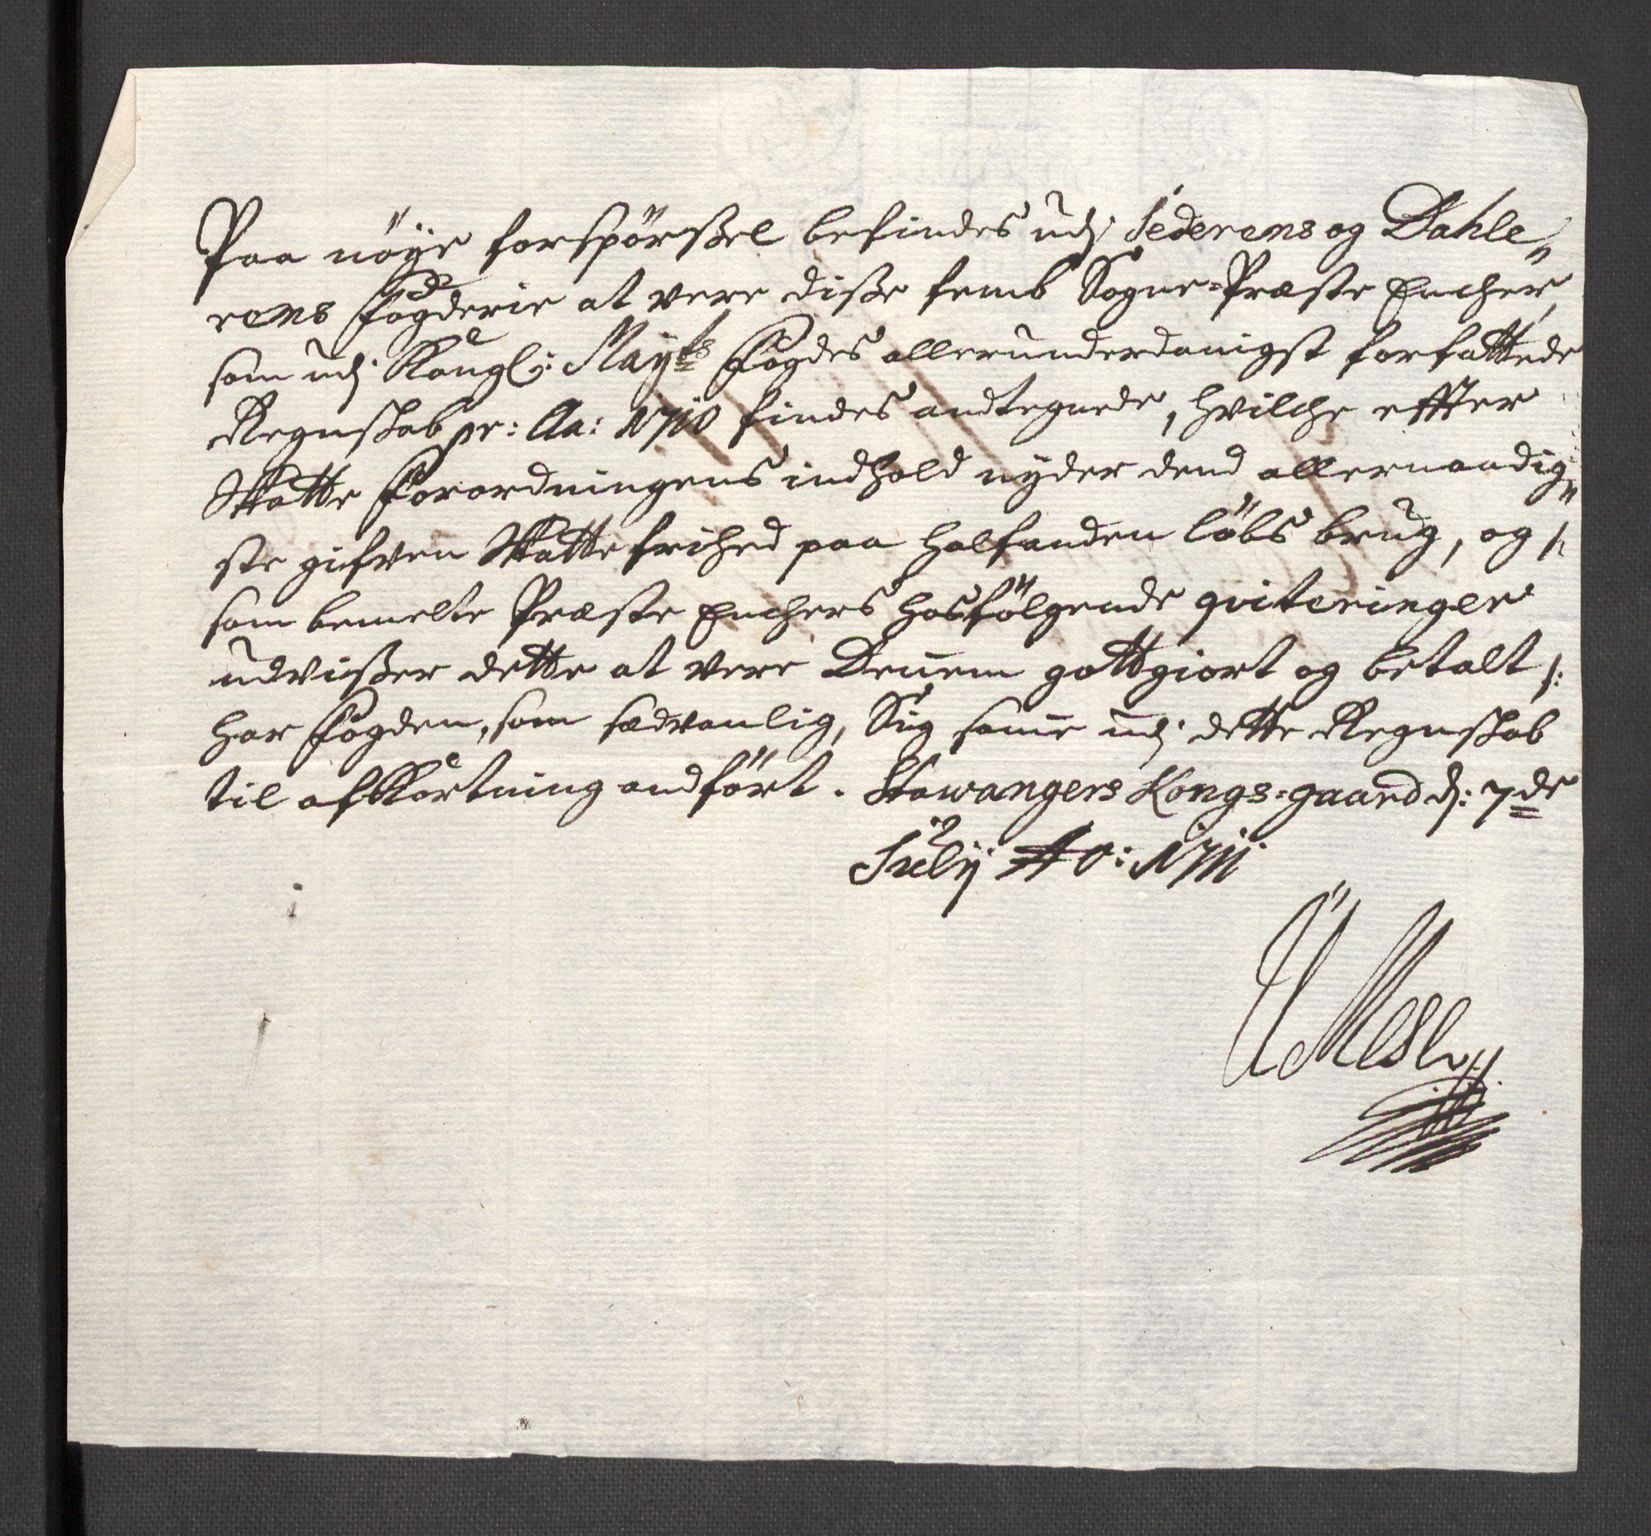 Paa nöye forspörßel befindes udj Jederens og Dahle-
rens Fogderie at vere diße femb Sogne-Præste Encher,
som udj Kongl: Mayts Fogdes allerunderdanigst forfattede
Regnskab pr: Aa: 1710 findes andtegnede, hvilche effter
Skatte Forordningens indhold nyder dend allernaadig-
ste gifven Skatte frihed paa halfanden löbs brug, og /:
som bemelte Præste Enchers hosfölgende qvitteringer
udvißer dette at vere Dennem gottgiort og betalt :/
har Fogden, som sædvanlig, Sig samme udj dette Regnskab
til afkortning andfört. Stawangers Kongs-gaard dj: 7de
Julij Ao: 1711